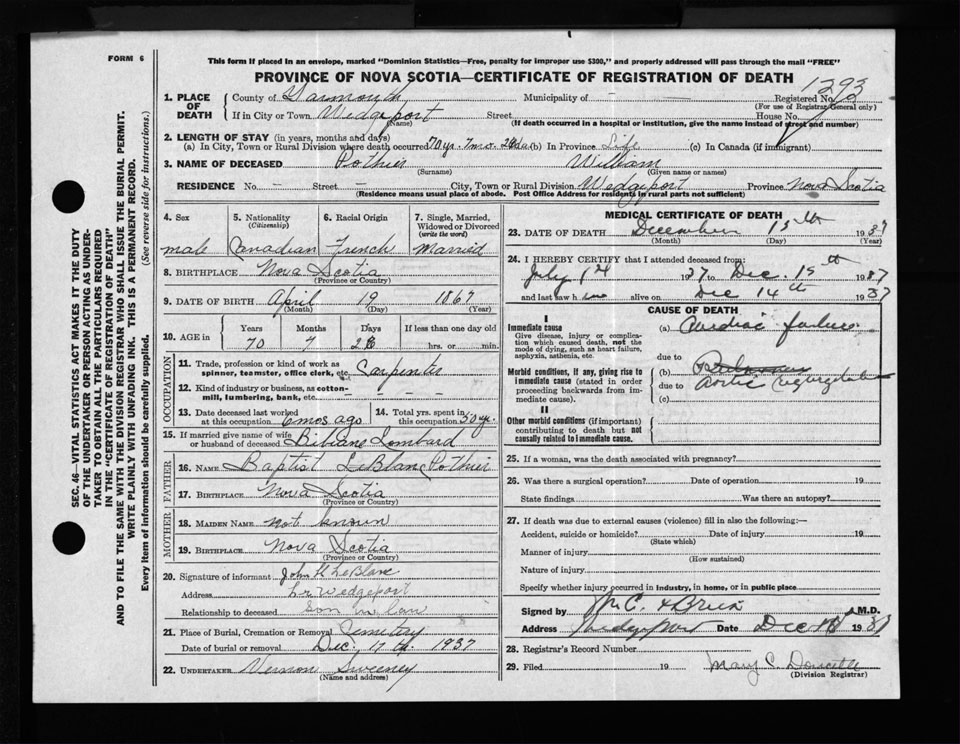 FORM 6
This form if placed in an envelope, marked "Dominion Statistics—Free, penalty for improper use $300," and properly addressed will pass through the mail "FREE"
PROVINCE OF NOVA SCOTIA—CERTIFICATE OF REGISTRATION OF DEATH
1293
1. PLACE OF DEATH County of Yarmouth Municipality of – – Registered No.
(For use of Registrar General only)
If in City or Town Wedgeport Street House No.
(Name) (If death occurred in a hospital or institution, give the name instead of street and number)
2. LENGTH OF STAY (in years, months and days)
(a) In City, Town or Rural Division where death occurred 70 yr. 7 mo. da. (b) In Province Life (c) In Canada (if immigrant)
3. NAME OF DECEASED Pothier William
(Surname) (Given name or names)
RESIDENCE No. – Street – City, Town or Rural Division Wedgeport Province Nova Scotia
(Residence means usual place of abode. Post Office Address for residents in rural parts not sufficient)
4. Sex 5. Nationality (Citizenship) 6. Racial Origin 7. Single, Married, Widowed or Divorced (write the word)
male Canadian French Married
8. BIRTHPLACE Nova Scotia
(Province or Country)
9. DATE OF BIRTH April 19 1867
(Month) (Day) (Year)
10. AGE in Years Months Days If less than one day old
70 7 hrs. or min.
OCCUPATION
11. Trade, profession or kind of work as spinner, teamster, office clerk, etc. Carpenter
12. Kind of industry or business, as cotton-mill, lumbering, bank, etc. – – – –
13. Date deceased last worked at this occupation 6 mos ago 14. Total yrs. spent in this occupation 50 yr.
15. If married give name of wife or husband of deceased Bibiane Lombard
FATHER
16. NAME Baptist LeBlanc Pothier
17. BIRTHPLACE Nova Scotia
(Province or Country)
MOTHER
18. MAIDEN NAME not known
19. BIRTHPLACE Nova Scotia
(Province or Country)
20. Signature of informant John H LeBlanc
Address Lr Wedgeport
Relationship to deceased Son in law
21. Place of Burial, Cremation or Removal Cemetery
Date of burial or removal Dec. 17 th 1937
22. UNDERTAKER Vernon Sweeney
(Name and address)
MEDICAL CERTIFICATE OF DEATH
23. DATE OF DEATH December 15th 1937
(Month) (Day) (Year)
24. I HEREBY CERTIFY that I attended deceased from:
July 1st 1937 to Dec. 15th 1937
and last saw him alive on Dec 14th 1937
CAUSE OF DEATH
I
Immediate cause (a) Cardiac failure
Give disease, injury or complication which caused death, not the mode of dying, such as heart failure, asphyxia, asthenia, etc.
due to
Morbid conditions, if any, giving rise to immediate cause (stated in order proceeding backwards from immediate).
(b)
due to aortic regurgitation
(c)
II
Other morbid conditions (if important) contributing to death but not causally related to immediate cause.
25. If a woman, was the death associated with pregnancy?
26. Was there a surgical operation? Date of operation 19
State findings Was there an autopsy?
27. If death was due to external causes (violence) fill in also the following:—
Accident, suicide or homicide? Date of injury 19
(State which)
Manner of injury
(How sustained)
Nature of injury
Specify whether injury occurred in industry, in home, or in public place
Signed by M.D.
Address Wedgeport Date Dec 1937
28. Registrar's Record Number
29. Filed 19 Mary C. Doucette
(Division Registrar)
SEC. 46—VITAL STATISTICS ACT MAKES IT THE DUTY
OF THE UNDERTAKER OR PERSON ACTING AS UNDER-
TAKER TO OBTAIN ALL THE PARTICULARS REQUIRED
IN THE "CERTIFICATE OF REGISTRATION OF DEATH"
AND TO FILE THE SAME WITH THE DIVISION REGISTRAR WHO SHALL ISSUE THE BURIAL PERMIT.
WRITE PLAINLY WITH UNFADING INK. THIS IS A PERMANENT RECORD.
Every item of information should be carefully supplied. (See reverse side for instructions.)